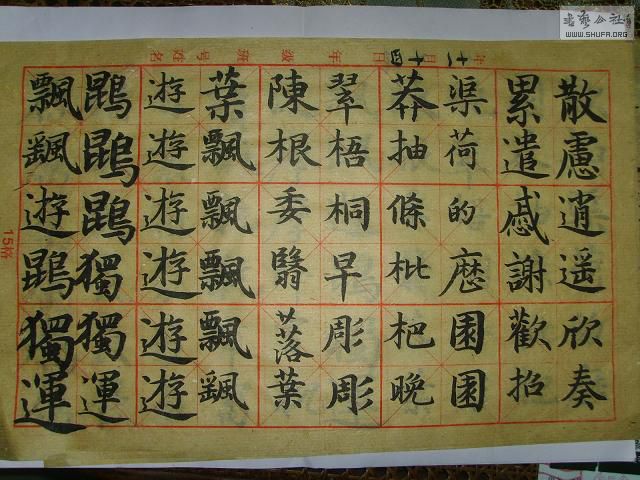 年十一月十四日 年级 班号姓名
散慮逍遥欣奏
累遣慼謝歡招
渠荷的厯園園
莽抽條枇杷晚
翠梧桐早彫彫
陳根委翳落葉
葉飄飄飄飄颻
遊遊遊遊遊遊
鵾鵾鵾獨獨運
飄颻遊鵾獨運
15格
書藝公社
WWW.SHUFA.ORG